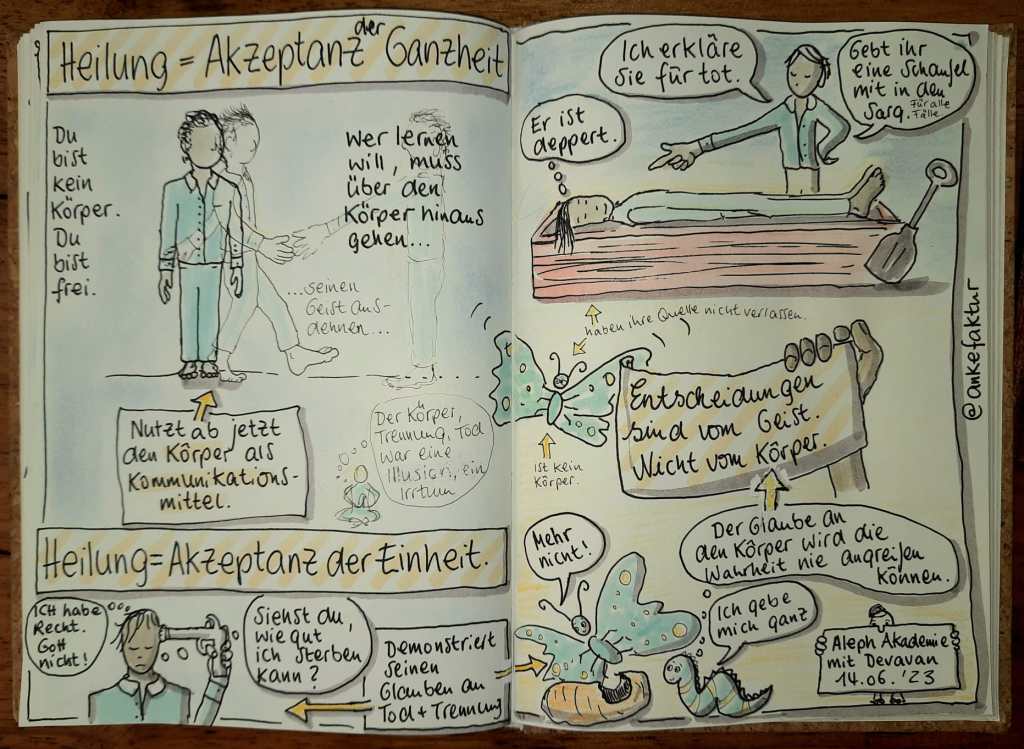 Heilung = Akzeptanz der Ganzheit
Du
bist
kein
Körper.
Du
bist
frei.
Wer lernen
will, muss
über den
Körper hinaus
gehen...
...seinen
Geist aus-
dehnen...
Nutzt ab jetzt
den Körper als
Kommunikations-
mittel.
Der Körper,
Trennung, Tod
war eine
Illusion, ein
Irrtum
Heilung=Akzeptanz der Einheit.
ICH habe
Recht.
Gott
nicht!
Siehst du,
wie gut
ich sterben
kann?
Demonstriert
seinen
Glauben an
Tod + Trennung
Ich erkläre
Sie für tot.
Gebt ihr
eine Schaufel
mit in den
Sarg. Für alle
Fälle
Er ist
deppert.
haben ihre Quelle nicht verlassen.
Entscheidungen
sind vom Geist.
Nicht vom Körper.
ist kein
Körper.
@ankefaktur
Der Glaube an
den Körper wird die
Wahrheit nie angreifen
können.
Mehr
nicht!
Ich gebe
mich ganz
Aleph Akademie
mit Devavan
14.06.'23